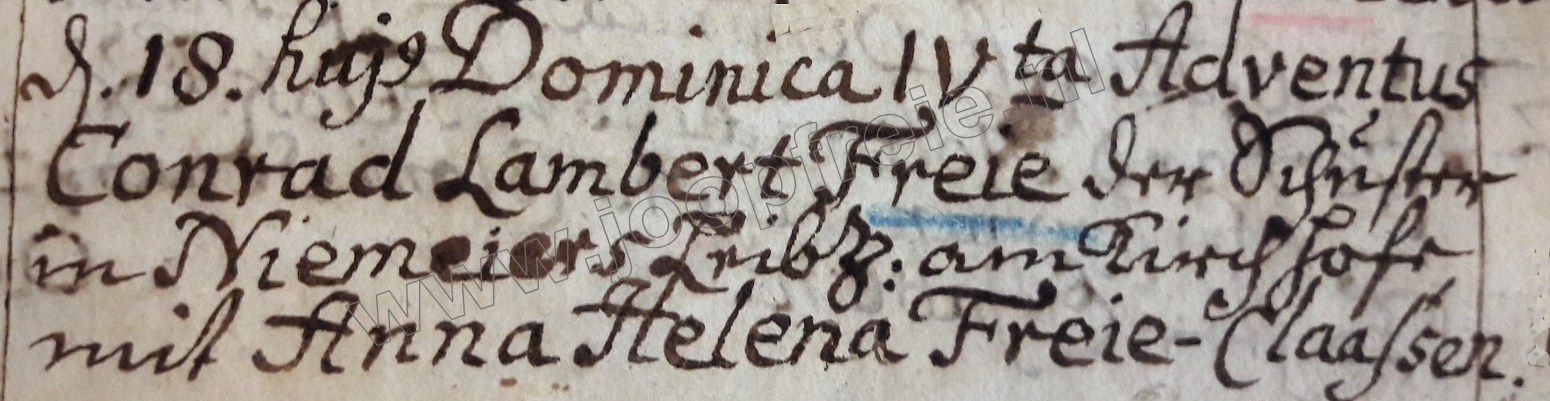 d. 18. hujꝰ Dominica IVta Adventus
Conrad Lambert Freie der Schuster
in Niemeiers Leibz: am Kirchhofe
mit Anna Helena Freie-Claaſsen.
www.joopfreie.nl